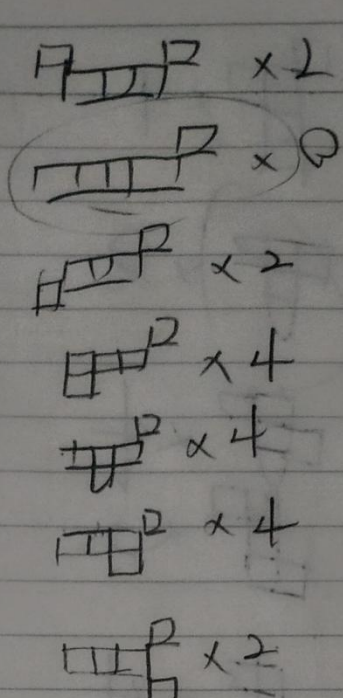 × 2
× 8
× 2
× 4
× 4
× 4
× 2